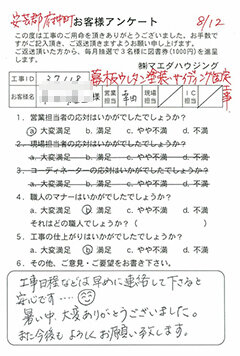 安芸郡府中町 お客様アンケート 8/12
この度は工事のご用命を頂きありがとうございました。お手数で
すがご記入頂き、ご返送頂きますようお願い申し上げます。
ご返送頂いた方から、毎月抽選で3名様に図書券(1000円)を進呈
します。 ㈱マエダハウジング
工事ID 27118 屋根ウレタン塗装・サイディング改修工事
お客様名 様 営業担当 幸田 現場担当 IC担当
1. 営業担当者の応対はいかがでしたでしょうか?
a 大変満足 b. 満足 c. やや不満 d. 不満
2. 現場担当者の応対はいかがでしたでしょうか?
a. 大変満足 b. 満足 c. やや不満 d. 不満
3. コーディネーターの応対はいかがでしたでしょうか?
a. 大変満足 b. 満足 c. やや不満 d. 不満
4. 職人のマナーはいかがでしたでしょうか?
a. 大変満足 b 満足 c. やや不満 d. 不満
それはどの職人でしょうか?( )
5. 工事の仕上がりはいかがでしたでしょうか?
a. 大変満足 b 満足 c. やや不満 d. 不満
6. その他、ご意見・ご要望をお書き下さい。
工事日程などは早めに連絡して下さると
安心です‥‥
暑い中、大変ありがとうございました。
また今後もよろしくお願い致します。